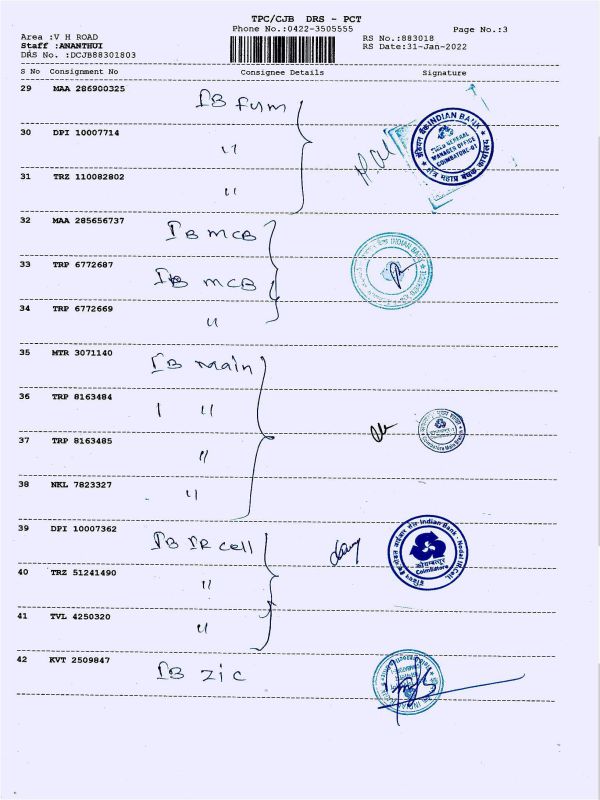 TPC/CJB DRS - PCT
Phone No.:0422-3505555
Page No.:3
Area :V H ROAD
Staff :ANANTHUI
DRS No. :DCJB88301803
RS No.:883018
RS Date:31-Jan-2022
S No Consignment No Consignee Details Signature
29 MAA 286900325 IB
30 DPI 10007714 "
31 TRZ 110082802 "
INDIAN BANK
FIELD GENERAL
MANAGER OFFICE
COIMBATORE-01
32 MAA 285656737 IB MCB
33 TRP 6772687 IB MCB
34 TRP 6772669 "
INDIAN BANK
35 MTR 3071140 IB Main
36 TRP 8163484 "
37 TRP 8163485 "
38 NKL 7823327 "
39 DPI 10007362 IB IR cell
40 TRZ 51241490 "
41 TVL 4250320 "
Indian Bank - Nodal IR Cell,
कोयम्बत्तूर
Coimbatore
42 KVT 2509847 IB ZIC